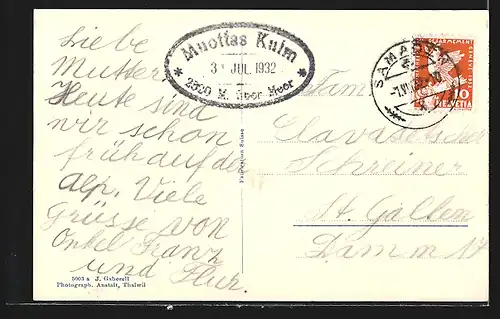 Liebe
Mutter
Heute sind
wir schon
früh auf der
Alp. Viele
Grüsse von
Onkel Franz
und Flur.
5003 a J. Gaberell
Photograph. Anstalt, Thalwil
Muottas Kulm
* 31 JUL. 1932 *
2520 M. über Meer
Fabrication Suisse
SAMADEN
DESARMEMENT
10
HELVETIA
Fam.
Clavadetscher
Schreiner
St. Gallen
Damm 17